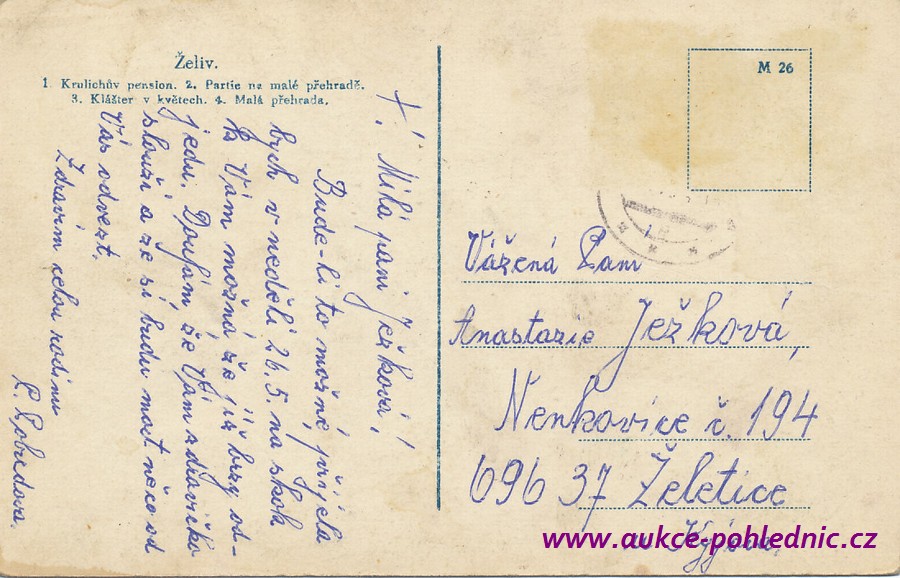 Želiv.
1. Krulichův pension. 2. Partie na malé přehradě.
3. Klášter v květech. 4. Malá přehrada.
M 26
+. Milá paní Ježková!
Bude-li to možné, přijela
bych v neděli 26.5. na skok
k Vám možná že již brzy od-
jedu. Doufám že Vám zdravíčko
slouží a že si budu moct něco od
Vás odvezt.
Zdravím celou rodinu
Vážená Paní
Anastazie Ježková,
Nenkovice č. 194
696 37 Želetice
u Kyjova
www.aukce-pohlednic.cz